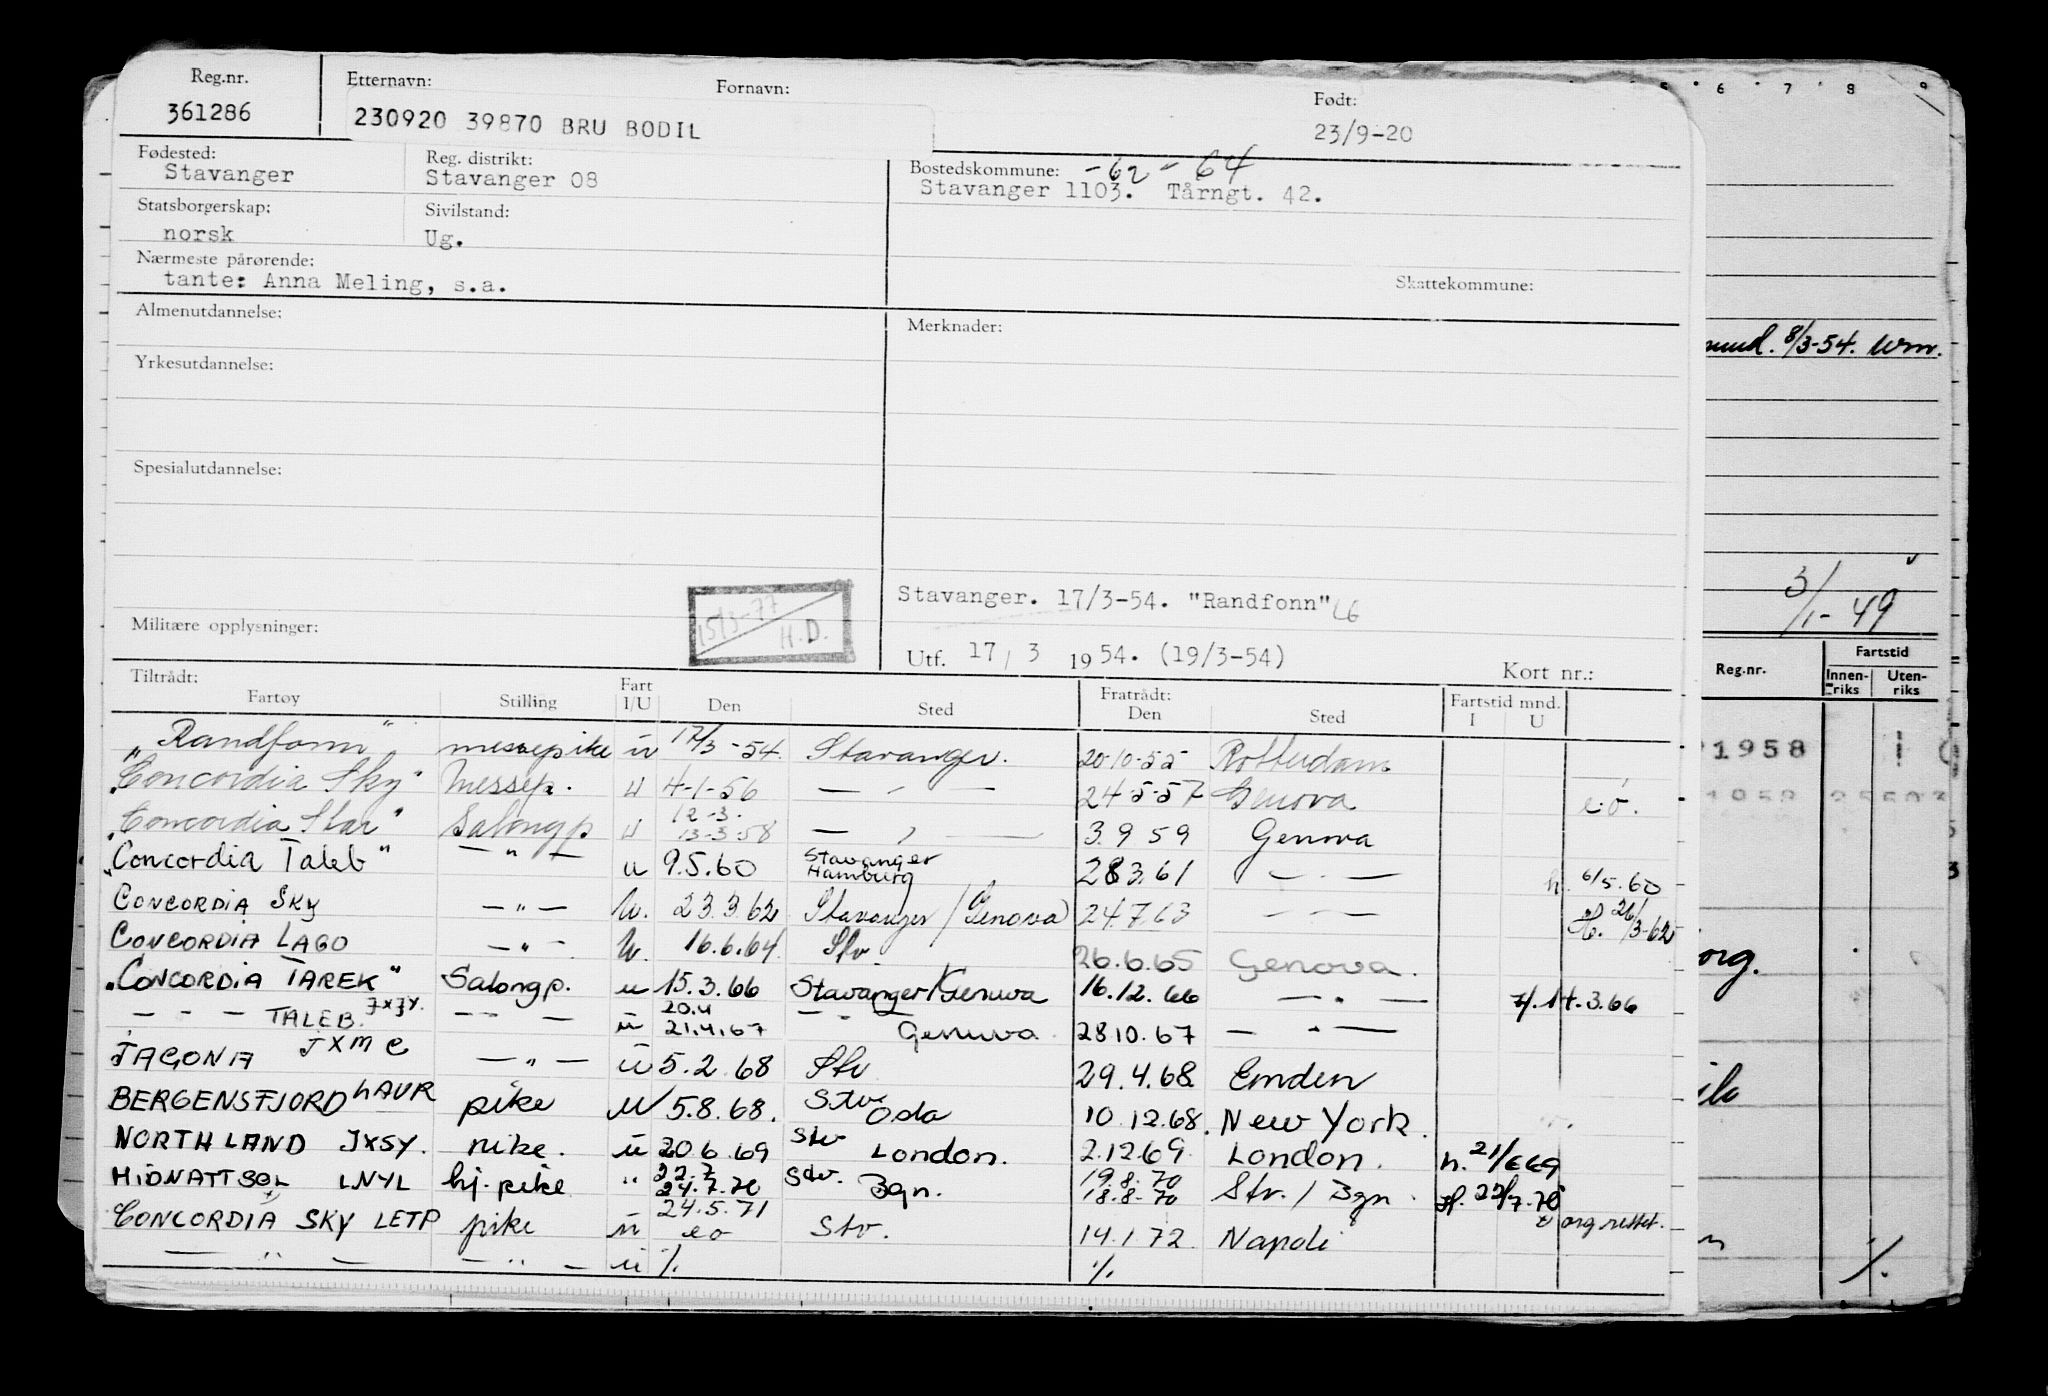 Reg.nr. Etternavn: Fornavn: Født:
361286 230920 39870 BRU BODIL 23/9-20
Fødested: Reg. distrikt: Bostedskommune: -62 - 64
Stavanger Stavanger 08 Stavanger 1103. Tårngt. 42.
Statsborgerskap: Sivilstand:
norsk Ug.
Nærmeste pårørende: Skattekommune:
tante: Anna Meling, s.a.
Almenutdannelse: Merknader:
Yrkesutdannelse:
Spesialutdannelse:
Stavanger. 17/3-54. "Randfonn"
15/3-77 H.D.
Militære opplysninger: Utf. 17 / 3 1954. (19/3-54) Kort nr.:
Tiltrådt: Fratrådt:
Fartøy Stilling Fart I/U Den Sted Den Sted Fartstid mnd. I U
"Randfonn" messepike u 17/3-54 Stavanger. 20-10-55 Rotterdam
"Concordia Sky" Messep. u 4-1-56 — " — 24-5-57 Genova e.o.
"Concordia Star" Salongp u 12-3. 13-3-58 — " — 3.9 59 Genova
"Concordia Taleb" — " — u 9.5.60 Stavanger Hamburg 28 3.61 — " — h. 6/5.60
CONCORDIA SKY — " — u. 23.3.62 Stavanger / (Genova) 24.7.63 — " — H. 26/3-62
CONCORDIA LAGO — " — u. 16.6.64 Stv 26.6.65 Genova.
"CONCORDIA TAREK" Salongp. u 15.3.66 Stavanger/Genova 16.12.66 — " — H. 14.3.66
— " — TALEB JXJY. — " — u 20.4 21.4.67 — " — Genova 28 10.67 — " —
JAGONA JXMC — " — u 5.2.68 Stv 29.4.68 Emden
BERGENSFJORD LAUR pike u 5.8.68. Stv Oslo 10.12.68. New York.
NORTHLAND JXSY. pike. u 20.6.69 Stv London. 2.12.69. London. h. 21/6 69
MIDNATTSOL LNYL hj. pike " 22.7 24.7.70 Stv. Bgn. 19.8.70 18.8-70 Stv. / Bgn. H. 22/7.70
CONCORDIA SKY LETP pike u 24.5.71 eo Stv. 14.1.72 Napoli org rettet.
— " — — " — u %. %.
6 7 8 9
8/3-54. Wm.
3/1-49
Reg.nr. Fartstid
Innen-riks Uten-riks
1958